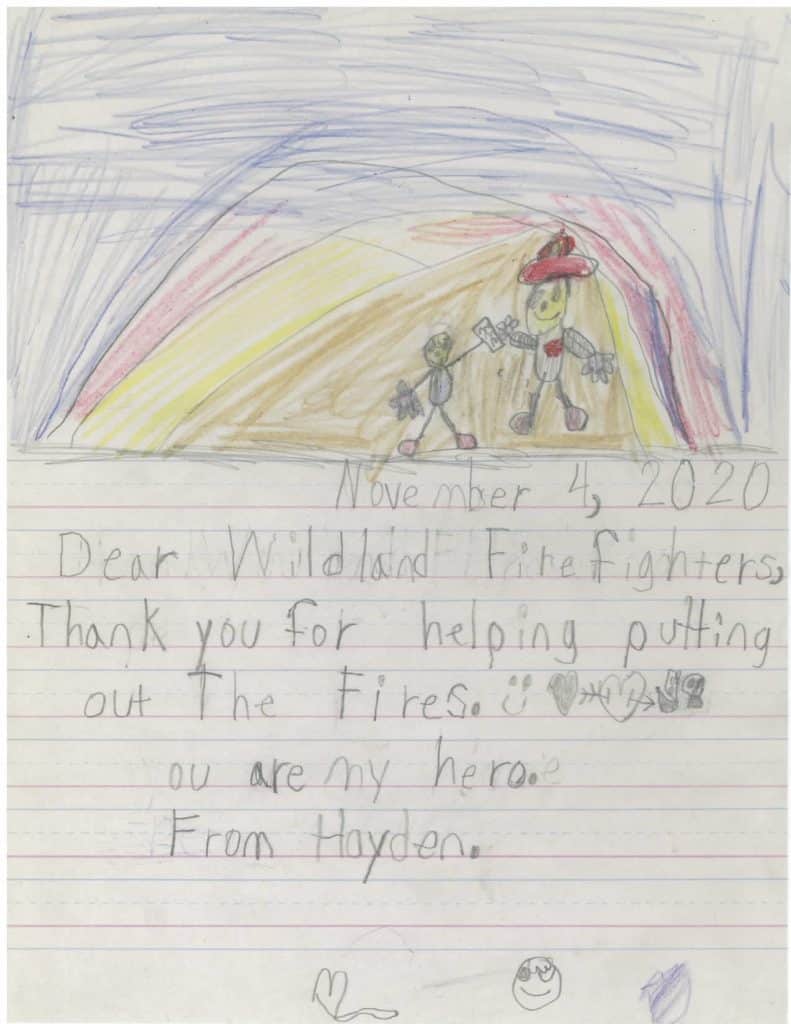 November 4, 2020
Dear Wildland Firefighters,
Thank you for helping putting
out The Fires.
ou are my hero.
From Hayden.